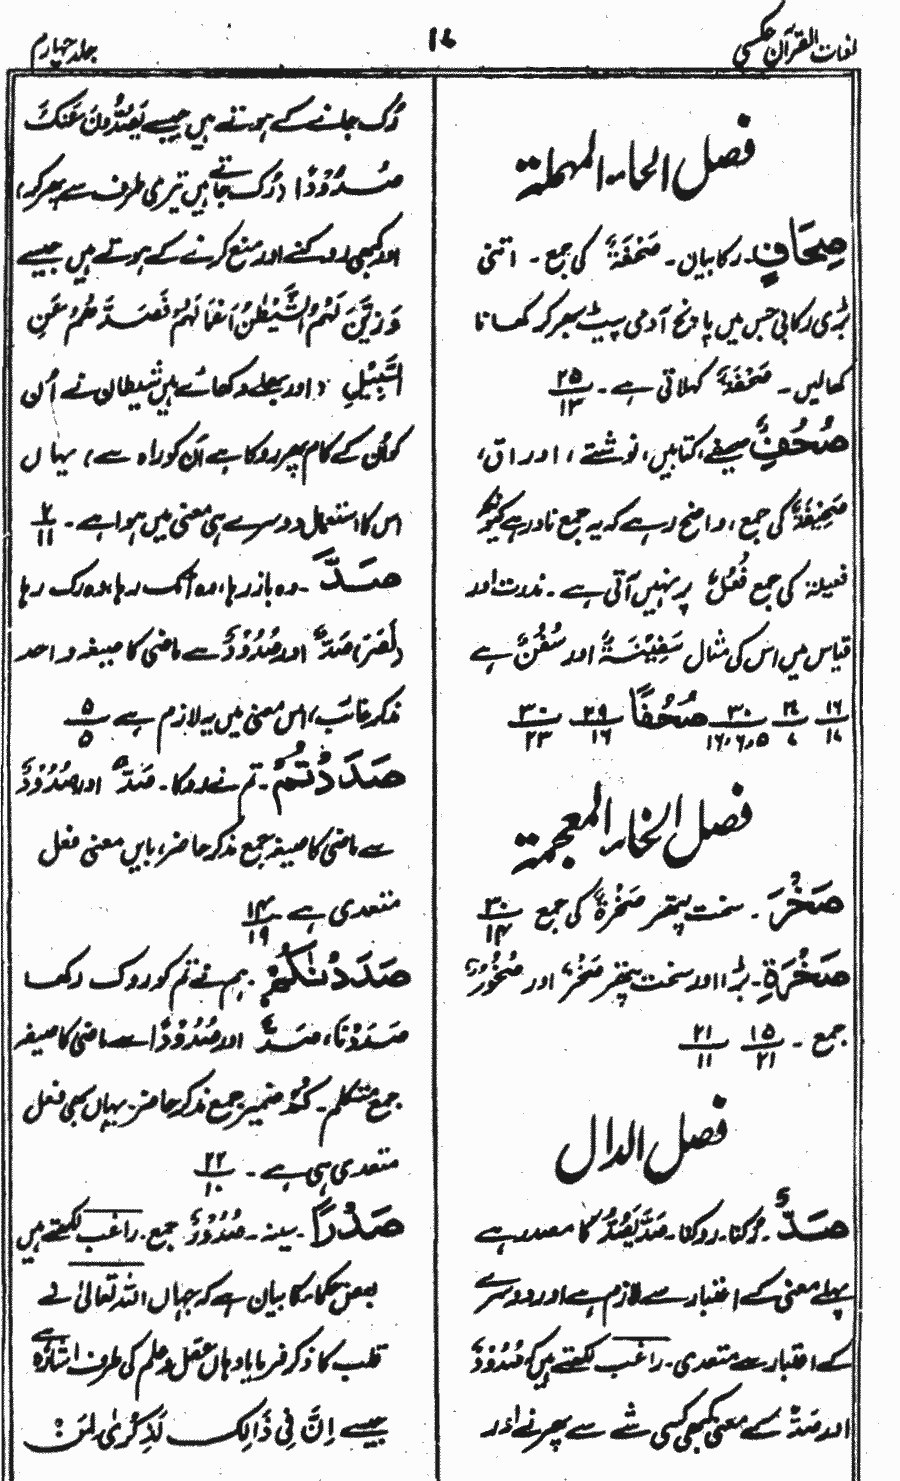 لغات القرآن عکسی
۱۷
جلد چہارم
فصل الحاء المہملۃ
صِحَافٍ۔ رکابیاں۔ صَحْفَۃٌ کی جمع۔ اتنی
بڑی رکابی جس میں پانچ آدمی پیٹ بھر کر کھانا
کھالیں۔ صَحْفَۃٌ کہلاتی ہے۔ ۲۵/۱۳
صُحُفٌ صحیفے، کتابیں، نوشتے، اوراق،
صَحِیْفَۃٌ کی جمع، واضح رہے کہ یہ جمع نادر ہے کیونکہ
فعیلۃ کی جمع فُعُلٌ پر نہیں آتی ہے۔ ندرت اور
قیاس میں اس کی مثال سَفِیْنَۃٌ اور سُفُنٌ ہے
۱۶/۱۷ ۲۷/۷ ۳۰/۵،۶،۱۶ صُحُفًا ۲۹/۱۶ ۳۰/۲۳
فصل الخاء المعجمۃ
صَخْرٌ۔ سخت پتھر صَخْرَۃٌ کی جمع ۳۰/۱۴
صَخْرَۃٍ۔ بڑا اور سخت پتھر صَخْرٌ اور صُخُوْرٌ
جمع۔ ۱۵/۲۱ ۲۱/۱۱
فصل الدال
صَدٌّ۔ مڑکنا۔ روکنا۔ صَدَّ یَصُدُّ کا مصدر ہے
پہلے معنی کے اعتبار سے لازم ہے اور دوسرے
کے اعتبار سے متعدی۔ راغب لکھتے ہیں کہ صُدُوْدٌ
اور صَدٌّ کے معنی کبھی کسی شے سے پھرنے اور
رُک جانے کے ہوتے ہیں جیسے یَصُدُّوْنَ عَنْکَ
صُدُوْدًا (رُک جاتے ہیں تیری طرف سے پھر کر)
اور کبھی روکنے اور منع کرنے کے ہوتے ہیں جیسے
وَزَیَّنَ لَہُمُ الشَّیْطٰنُ اَعْمَالَہُمْ فَصَدَّہُمْ عَنِ
السَّبِیْلِ (اور بھلے دکھائے ہیں شیطان نے اُن
کو اُن کے کام پھر روکا ہے اُن کو راہ سے) یہاں
اس کا استعمال دوسرے ہی معنی میں ہوا ہے۔ ۲/۱۱
صَدَّ۔ وہ باز رہا، وہ اٹک رہا، وہ رک رہا
(نَصَرَ) صَدٌّ اور صُدُوْدٌ سے ماضی کا صیغہ واحد
مذکر غائب، اس معنی میں یہ لازم ہے ۵/۵
صَدَدْتُمْ۔ تم نے روکا۔ صَدٌّ اور صُدُوْدٌ
سے ماضی کا صیغہ جمع مذکر حاضر، بایں معنی فعل
متعدی ہے ۱۴/۱۹
صَدَدْنٰکُمْ۔ ہم نے تم کو روک رکھا
صَدَدْنَا، صَدٌّ اور صُدُوْدٌ سے ماضی کا صیغہ
جمع متکلم۔ کُمْ ضمیر جمع مذکر حاضر۔ یہاں بھی فعل
متعدی ہی ہے۔ ۲۲/۱۰
صَدْرًا۔ سینہ۔ صُدُوْرٌ جمع۔ راغب لکھتے ہیں
بعض حکماء کا بیان ہے کہ جہاں اللہ تعالیٰ نے
قلب کا ذکر فرمایا وہاں عقل و علم کی طرف اشارہ ہے
جیسے اِنَّ فِیْ ذَالِکَ لَذِکْرٰی لِمَنْ